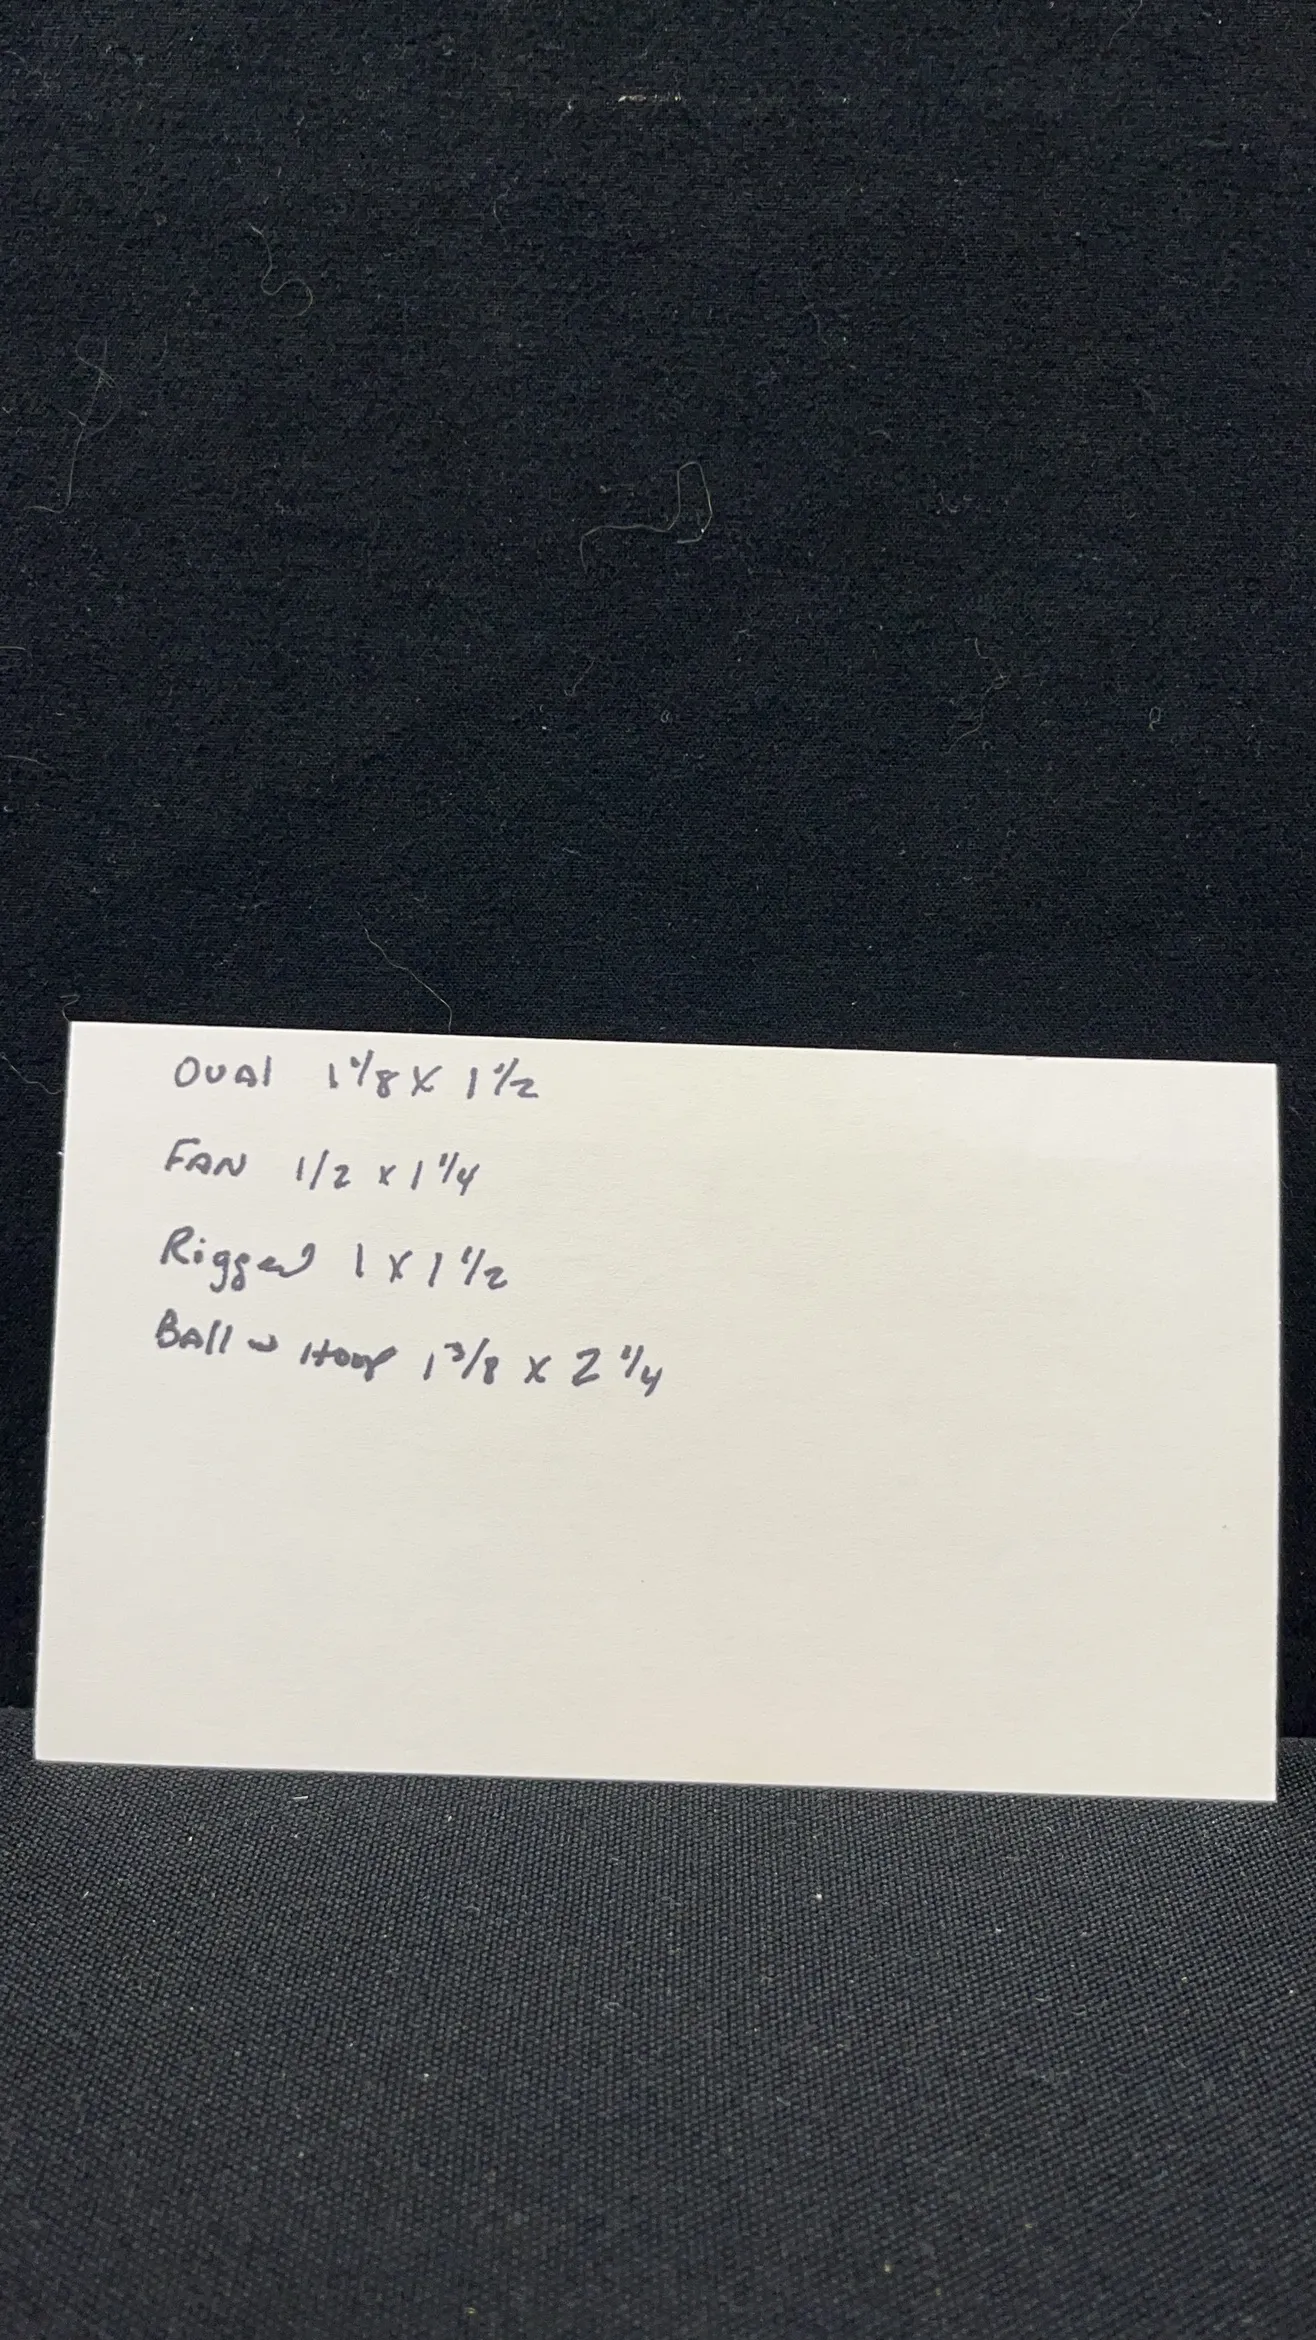 Oval 1 1/8 x 1 1/2
FAN 1/2 x 1 1/4
Rigged 1 x 1 1/2
Ball w Hoop 1 3/8 x 2 1/4